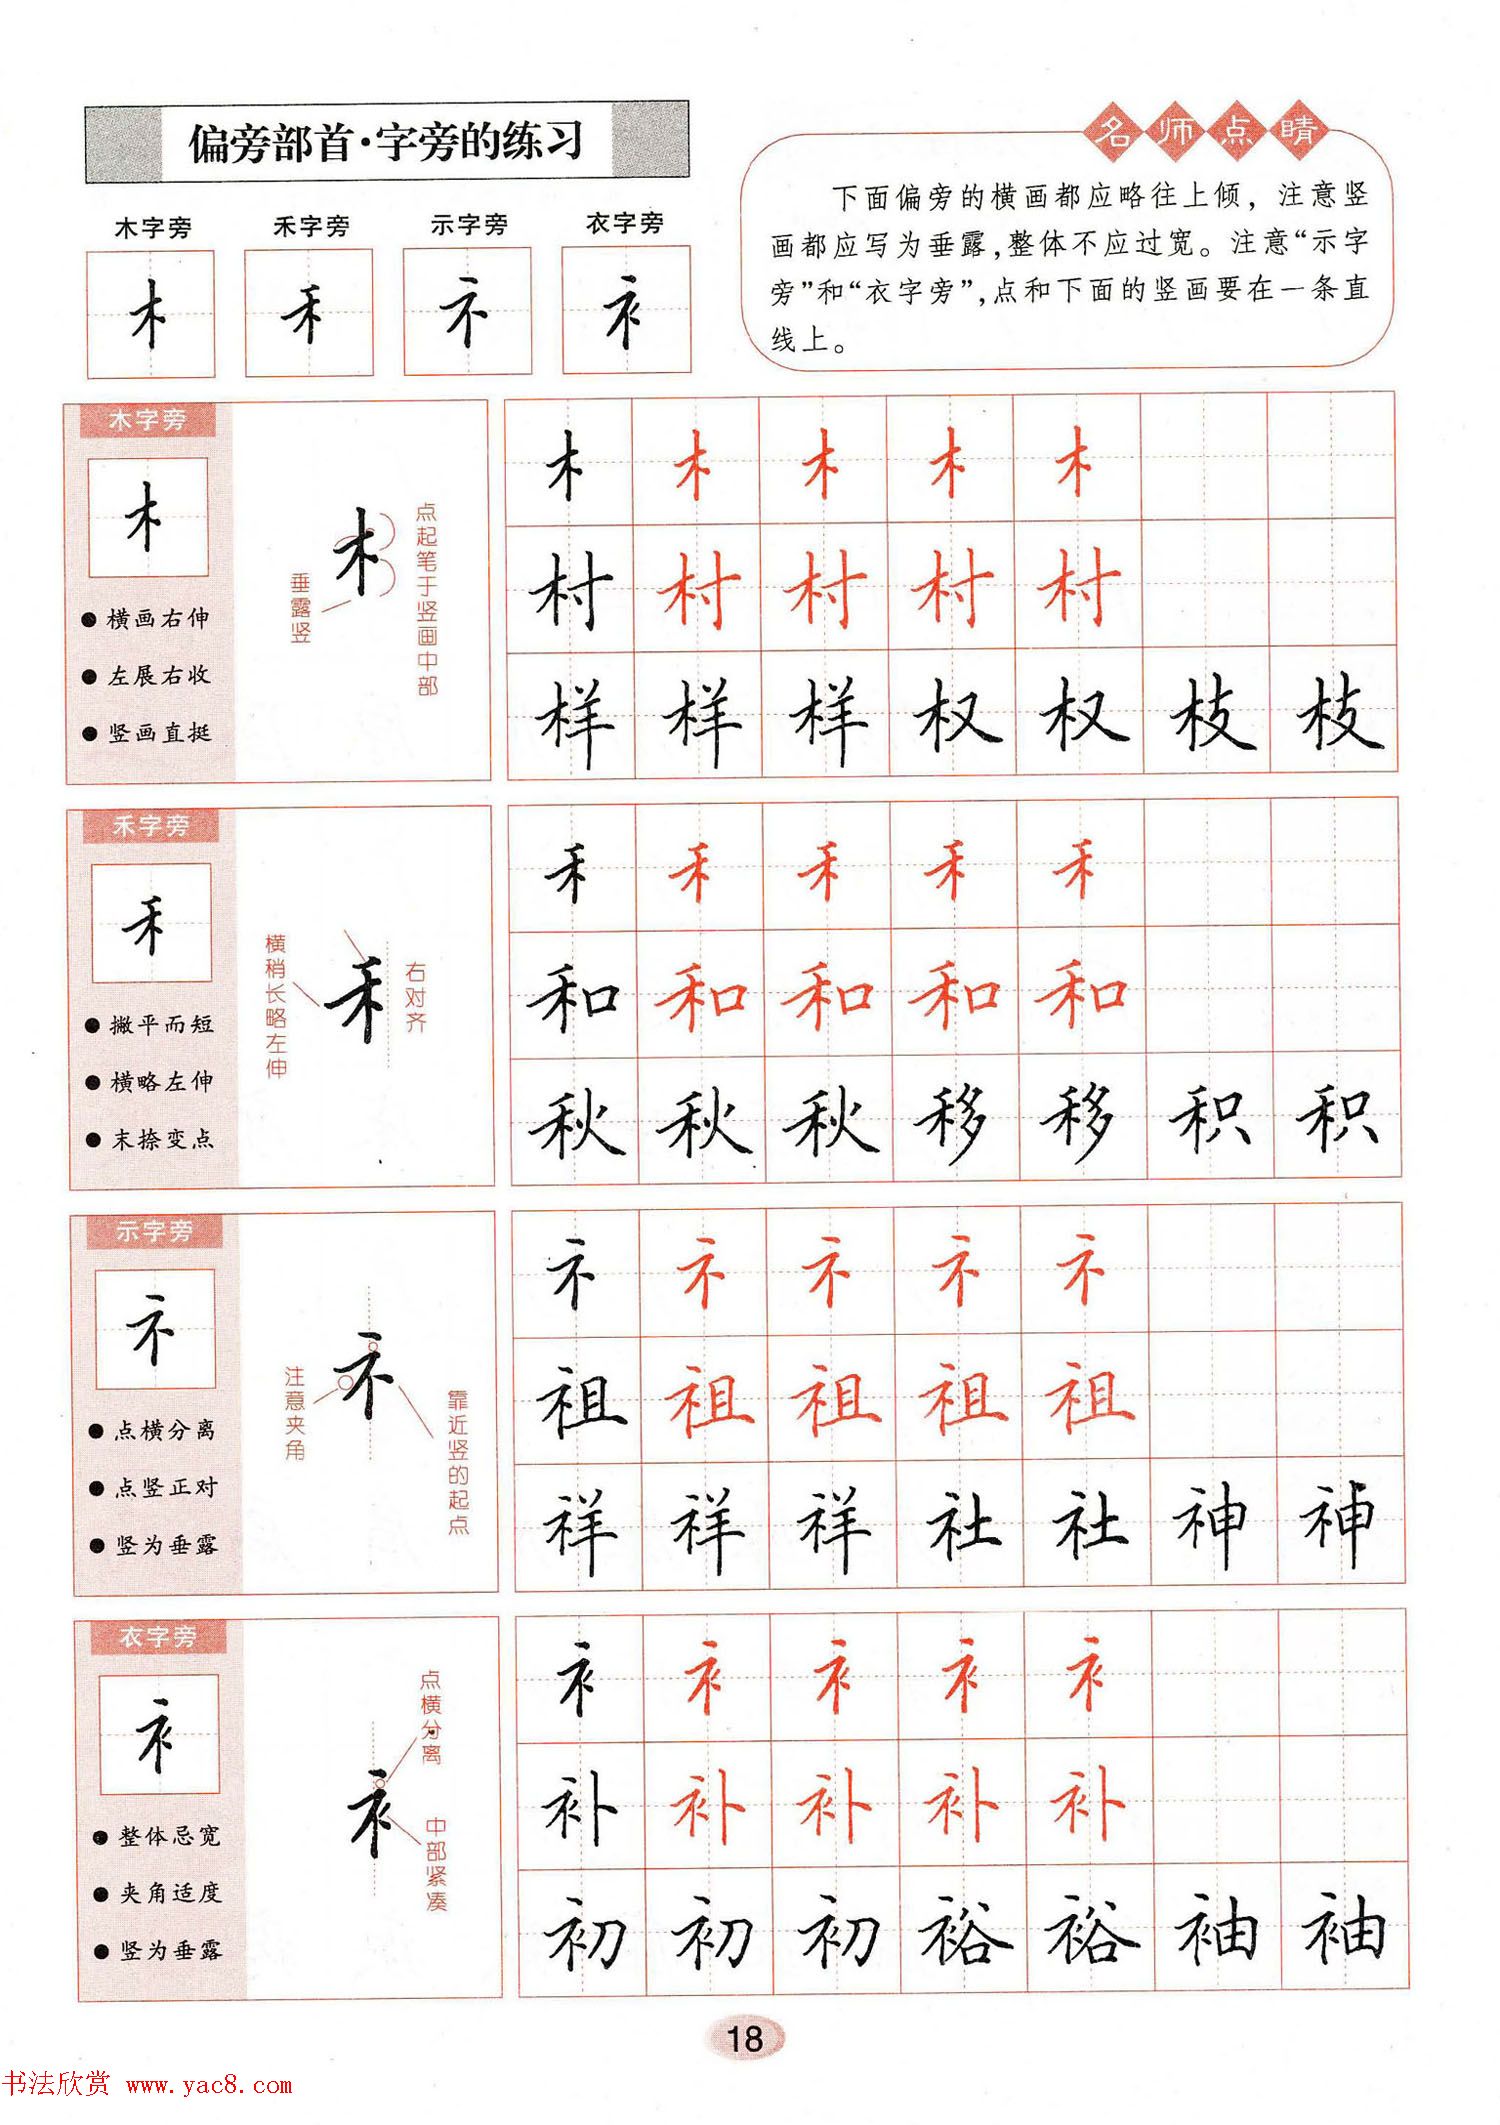 偏旁部首·字旁的练习
名师点睛
下面偏旁的横画都应略往上倾，注意竖
画都应写为垂露，整体不应过宽。注意“示字
旁”和“衣字旁”，点和下面的竖画要在一条直
线上。
木字旁 禾字旁 示字旁 衣字旁
木 禾 礻 衤
木字旁
木
横画右伸
左展右收
竖画直挺
垂露竖
木
点起笔于竖画中部
木 木 木 木 木
村 村 村 村 村
样 样 样 权 权 枝 枝
禾字旁
禾
撇平而短
横略左伸
末捺变点
横稍长略左伸
禾
右对齐
禾 禾 禾 禾 禾
和 和 和 和 和
秋 秋 秋 移 移 积 积
示字旁
礻
点横分离
点竖正对
竖为垂露
注意夹角
礻
靠近竖的起点
礻 礻 礻 礻 礻
祖 祖 祖 祖 祖
祥 祥 祥 社 社 神 神
衣字旁
衤
整体忌宽
夹角适度
竖为垂露
点横分离
衤
中部紧凑
衤 衤 衤 衤 衤
补 补 补 补 补
初 初 初 裕 裕 袖 袖
18
书法欣赏 www.yac8.com